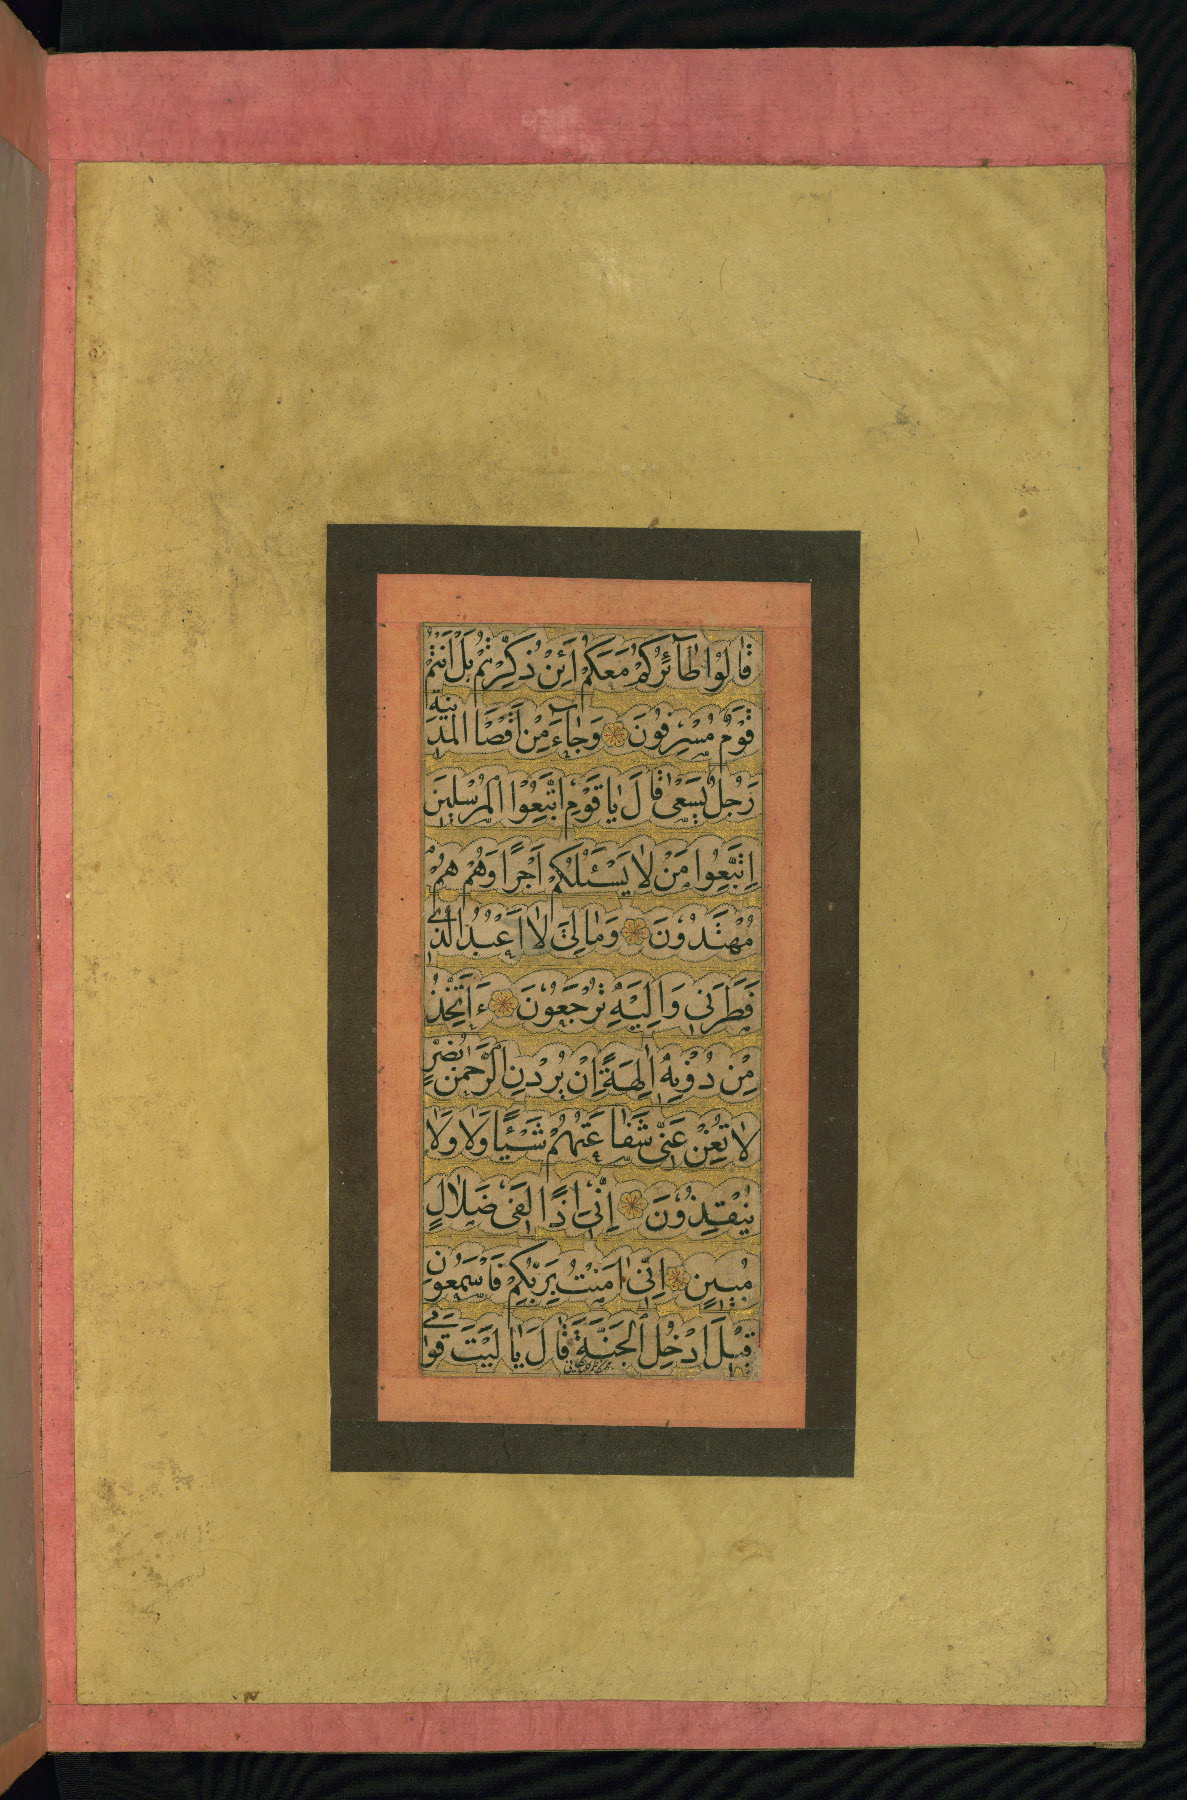 قَالُوا طَآئِرُكُمْ مَعَكُمْ اَئِنْ ذُكِّرْتُمْ بَلْ اَنْتُمْ
قَوْمٌ مُسْرِفُونَ وَجَآءَ مِنْ اَقْصَا الْمَدينَةِ
رَجُلٌ يَسْعٰى قَالَ يَا قَوْمِ اتَّبِعُوا الْمُرْسَلينَ
اِتَّبِعُوا مَنْ لَا يَسْئَلُكُمْ اَجْرًا وَهُمْ هُمْ
مُهْتَدُونَ وَمَا لِيَ لَا اَعْبُدُ الَّذى
فَطَرَنى وَاِلَيْهِ تُرْجَعُونَ ءَاَتَّخِذُ
مِنْ دُوْنِهِ اٰلِهَةً اِنْ يُرْدْنِ الرَّحْمٰنُ بِضُرٍّ
لَا تُغْنِ عَنّى شَفَاعَتُهُمْ شَيْئًا وَلَا وَلَا
يُنْقِذُونَ اِنّى اِذًا لَفى ضَلَالٍ
مُبينٍ اِنّى اٰمَنْتُ بِرَبِّكُمْ فَاسْمَعُونِ
قيْلَ ادْخُلِ الْجَنَّةَ قَالَ يَا لَيْتَ قَوْمى